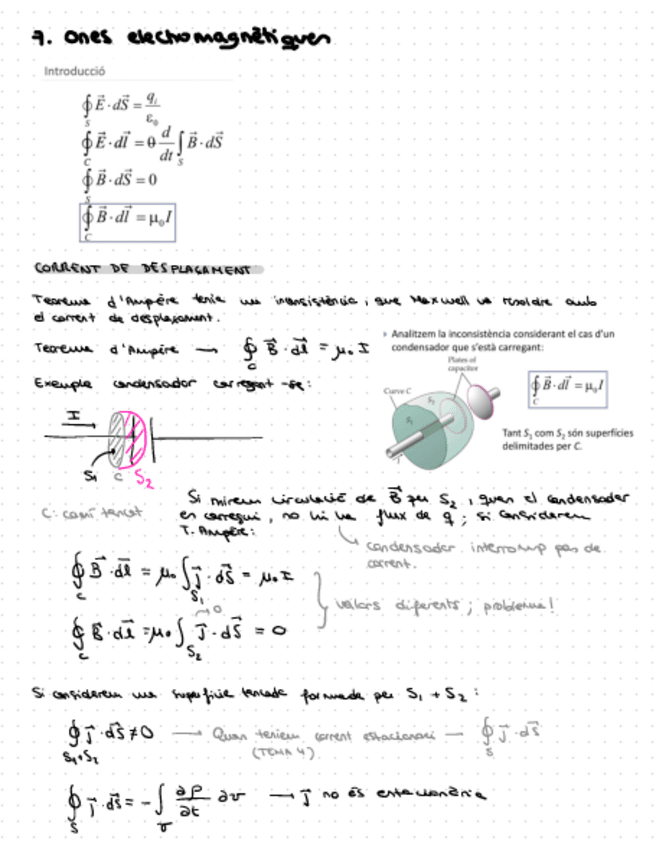 7. Ones electromagnètiques
Introducció
∮_S E⃗·dS⃗ = q_i/ε₀
∮_C E⃗·dl⃗ = θ d/dt ∫_S B⃗·dS⃗
∮_S B⃗·dS⃗ = 0
∮_C B⃗·dl⃗ = μ₀I
CORRENT DE DESPLAÇAMENT
Teorema d'Ampère tenia una inconsistència, que Maxwell va resoldre amb
el corrent de desplaçament.
Teorema d'Ampère → ∮_C B⃗·dl⃗ = μ₀ I
› Analitzem la inconsistència considerant el cas d'un
condensador que s'està carregant:
Plates of
capacitor
Curve C
S₂
S₁
I
∮_C B⃗·dl⃗ = μ₀I
Tant S₁ com S₂ són superfícies
delimitades per C.
Exemple condensador carregant-se:
I
S₁ C S₂
C: camí tancat
Si mirem circulació de B⃗ per S₂, quan el condensador
es carregui, no hi ha flux de q; si considerem
T. Ampère:
condensador interromp pas de
corrent.
∮_C B⃗·dl⃗ = μ₀ ∫_S₁ j⃗·dS⃗ = μ₀ I
∮_C B⃗·dl⃗ = μ₀ ∫_S₂ j⃗·dS⃗ = 0
→ 0
valors diferents; problema!
Si considerem una superfície tancada formada per S₁ + S₂:
∮_S₁+S₂ j⃗·dS⃗ ≠ 0 → Quan teníem corrent estacionari — ∮_S j⃗·dS⃗
(TEMA 4)
∮_S j⃗·dS⃗ = - ∫_τ ∂ρ/∂t ∂v → j⃗ no és estacionària